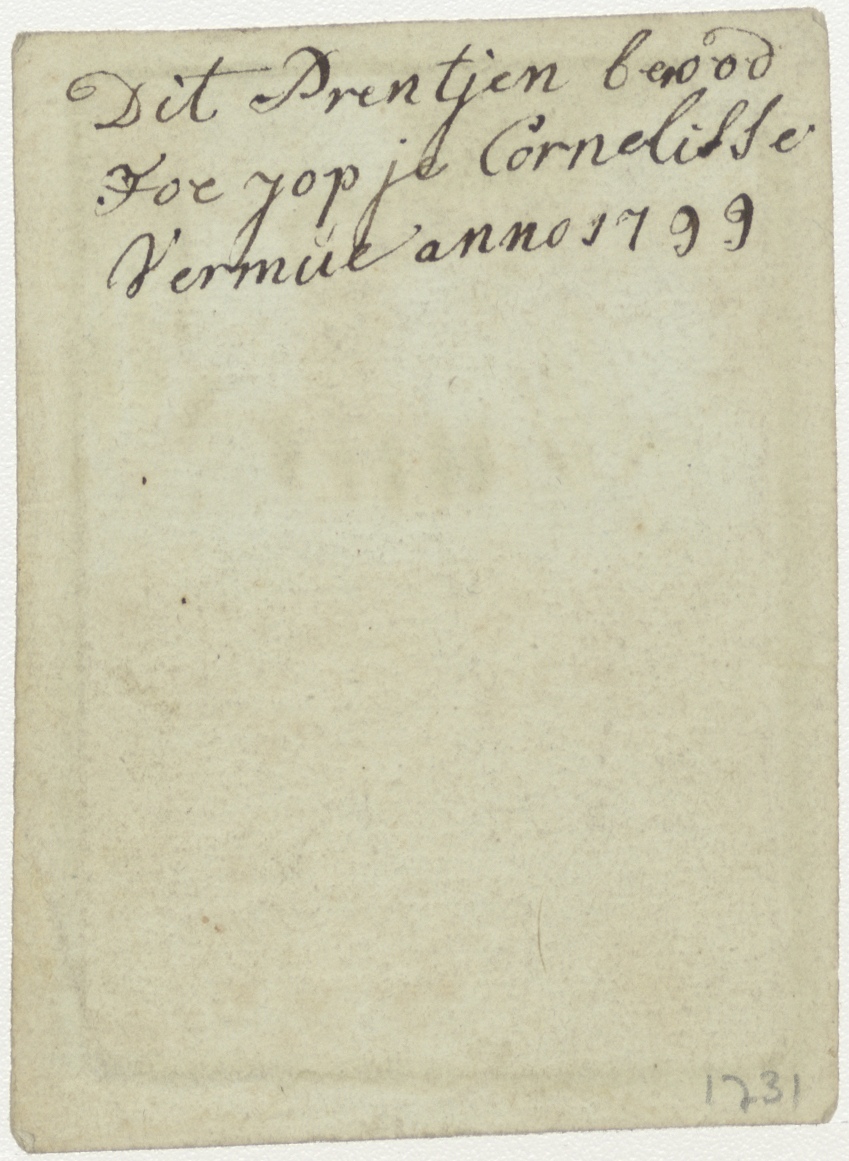 Dit Prentjen bewood
Toe yopje Cornelisse
Vermúe anno 1799
1731